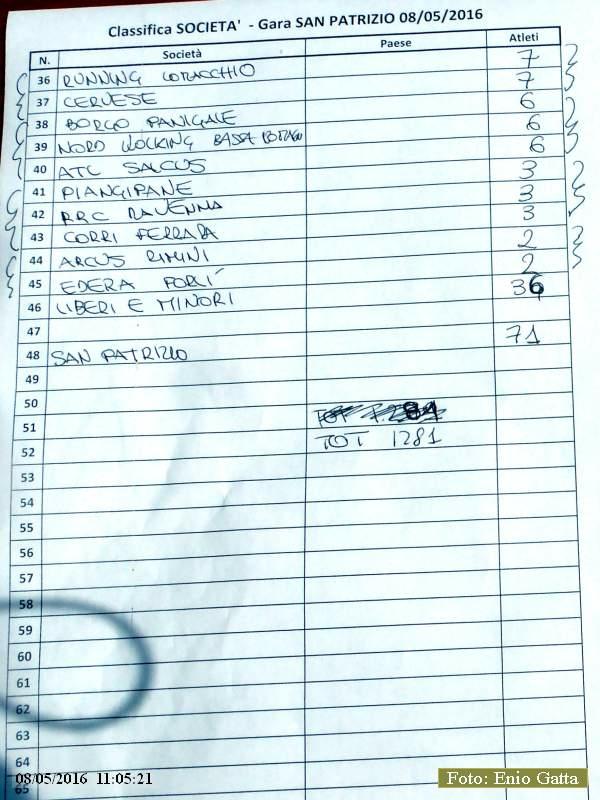 Classifica SOCIETA' - Gara SAN PATRIZIO 08/05/2016
N. Società Paese Atleti
36 RUNNING COTACCHIO 7
37 CERVESE 7
38 BORGO PANIGALE 6
39 NORD WOCKING BASSA 6
40 ATC SALCUS 6
41 PIANGIPANE 3
42 RRC RAVENNA 3
43 CORRI FERRARA 3
44 ARCUS RIMINI 2
45 EDERA FORLÍ 2
46 LIBERI E MINORI 36
47
48 SAN PATRIZIO 71
49
50
51
52 TOT 1281
53
54
55
56
57
58
59
60
61
62
63
64
65
08/05/2016 11:05:21
Foto: Enio Gatta